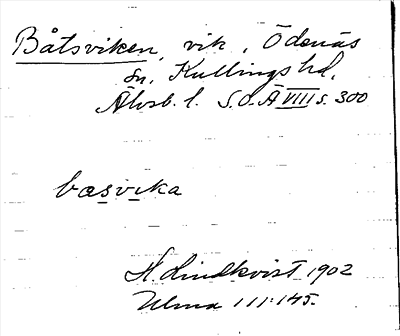 Båtsviken, vik, Ödenäs
sn, Kullings hd,
Älvsb. l. S.O.Ä VIII s. 300
bɑsvika
H. Lindkvist 1902
Ulma 111:145.